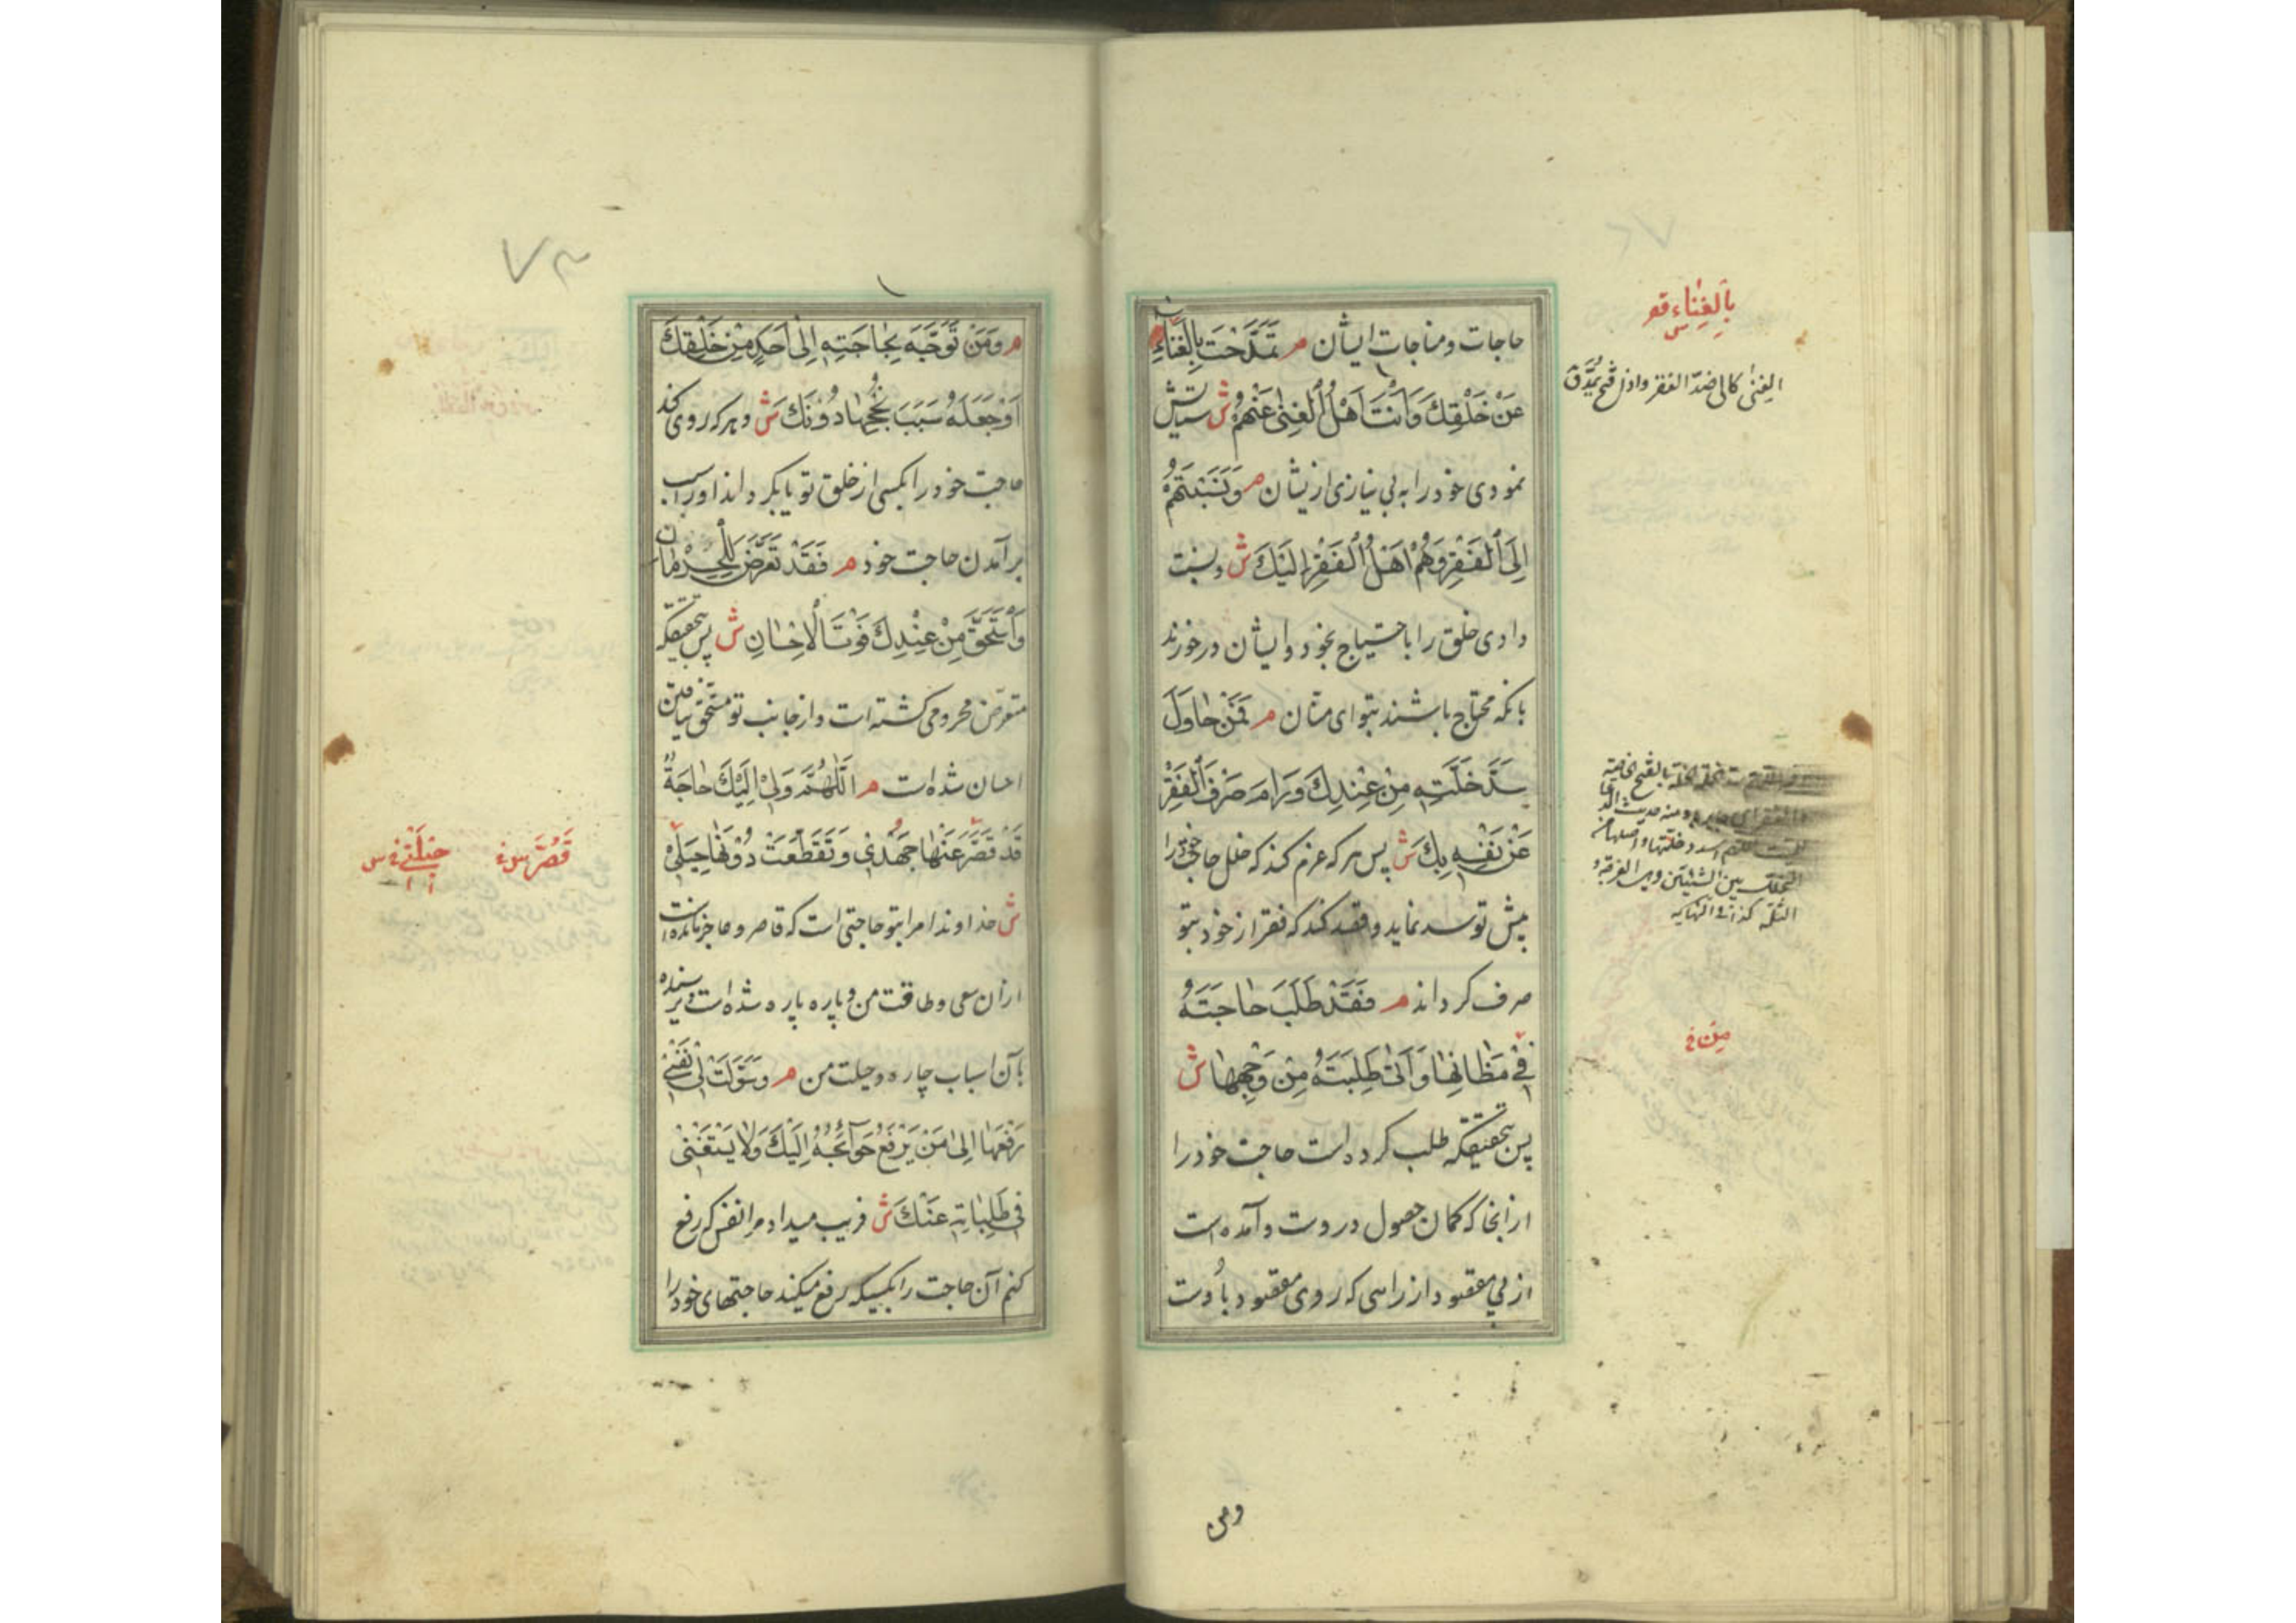 حاجات ومناجات ایشان م تمدحت بالغناء
عن خلقك وانت اهل الغنى عنهم ش ستایش
نمودی خود را به بی نیازی ازیشان م ونسبتهم
الى الفقر وهم اهل الفقر اليك ش ونسبت
دادی خلق را باحتیاج بخود وایشان درخورند
بانکه محتاج باشند بتو ای منان م فمن حاول
سد خلته من عندك ورام صرف الفقر
عن نفسه بك ش پس هر که عزم کند که خلل حاجت خود را
پیش تو سد نماید وقصد کند که فقر از خود بتو
صرف کرداند م فقد طلب حاجته
في مظانها واتى طلبته من وجهها ش
پس بتحقیقکه طلب کرده است حاجت خود را
ازانجا که کمان حصول دروست وآمده است
از پی مقصود از راهی که روی مقصود باوست
ومن
بالغناء
الغنى كالى ضد الفقر واذا فتح مد ق
بين الشيئين وهى الفرجة و
الثلمة كذا فى النهايه
من
۷۳
م ومن توجه بحاجته الى احد من خلقك
او جعله سبب نجحها دونك ش وهر که روی کند
حاجت خود را بکسی از خلق تو یا بکرداند اورا سبب
برآمدن حاجت خود م فقد تعرض للحرمان
واستحق من عندك فوت الاحسان ش پس بتحقیقکه
متعرض محرومی کشته است واز جانب تو مستحق نیافتن
احسان شده است م اللهم ولي اليك حاجة
قد قصر عنها جهدي وتقطعت دونها حيلي
ش خداوندا مرا بتو حاجتی است که قاصر وعاجز مانده است
ازان سعی وطاقت من وپاره پاره شده است نرسیده
بآن اسباب چاره وحیلت من م وسولت لي نفسي
رفعها الى من يرفع حوائجه اليك ولا يستغني
في طلباته عنك ش فریب میداد مرا نفس که رفع
کنم آن حاجت را بکسیکه رفع میکند حاجتهای خود را
قصر س
حيلتي س